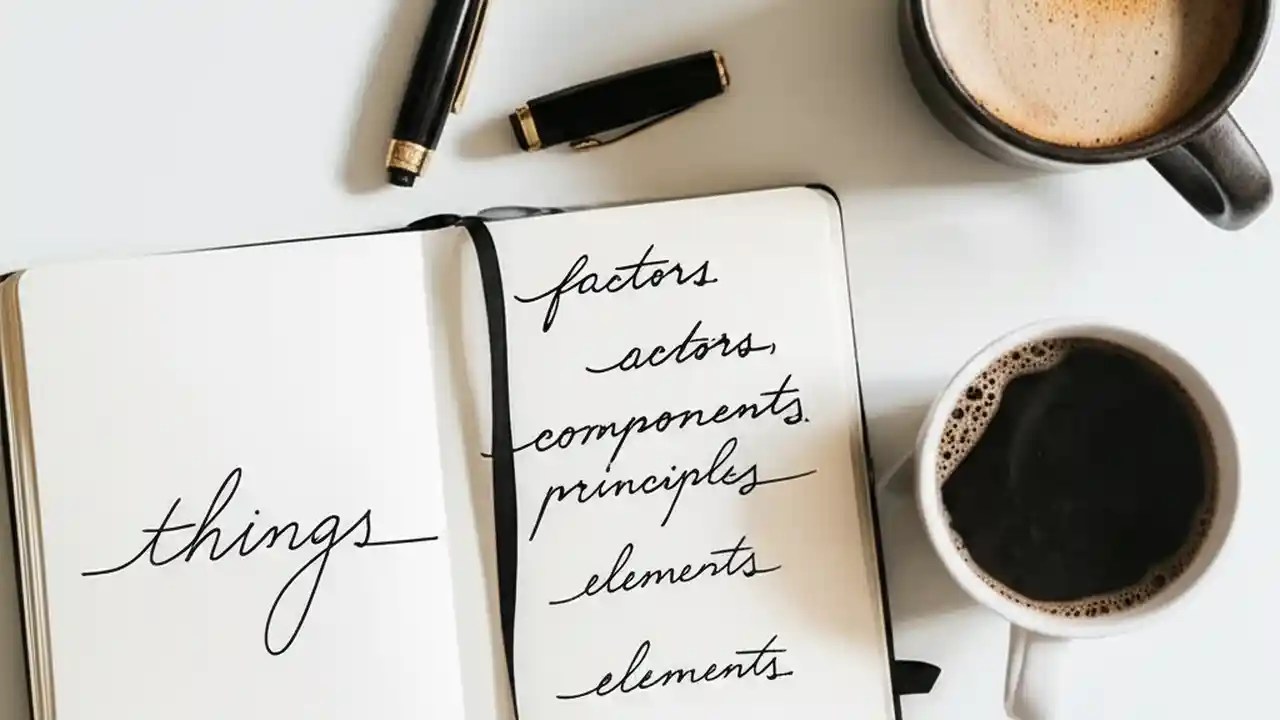 things
factors
actors,
components.
principles
elements
elements